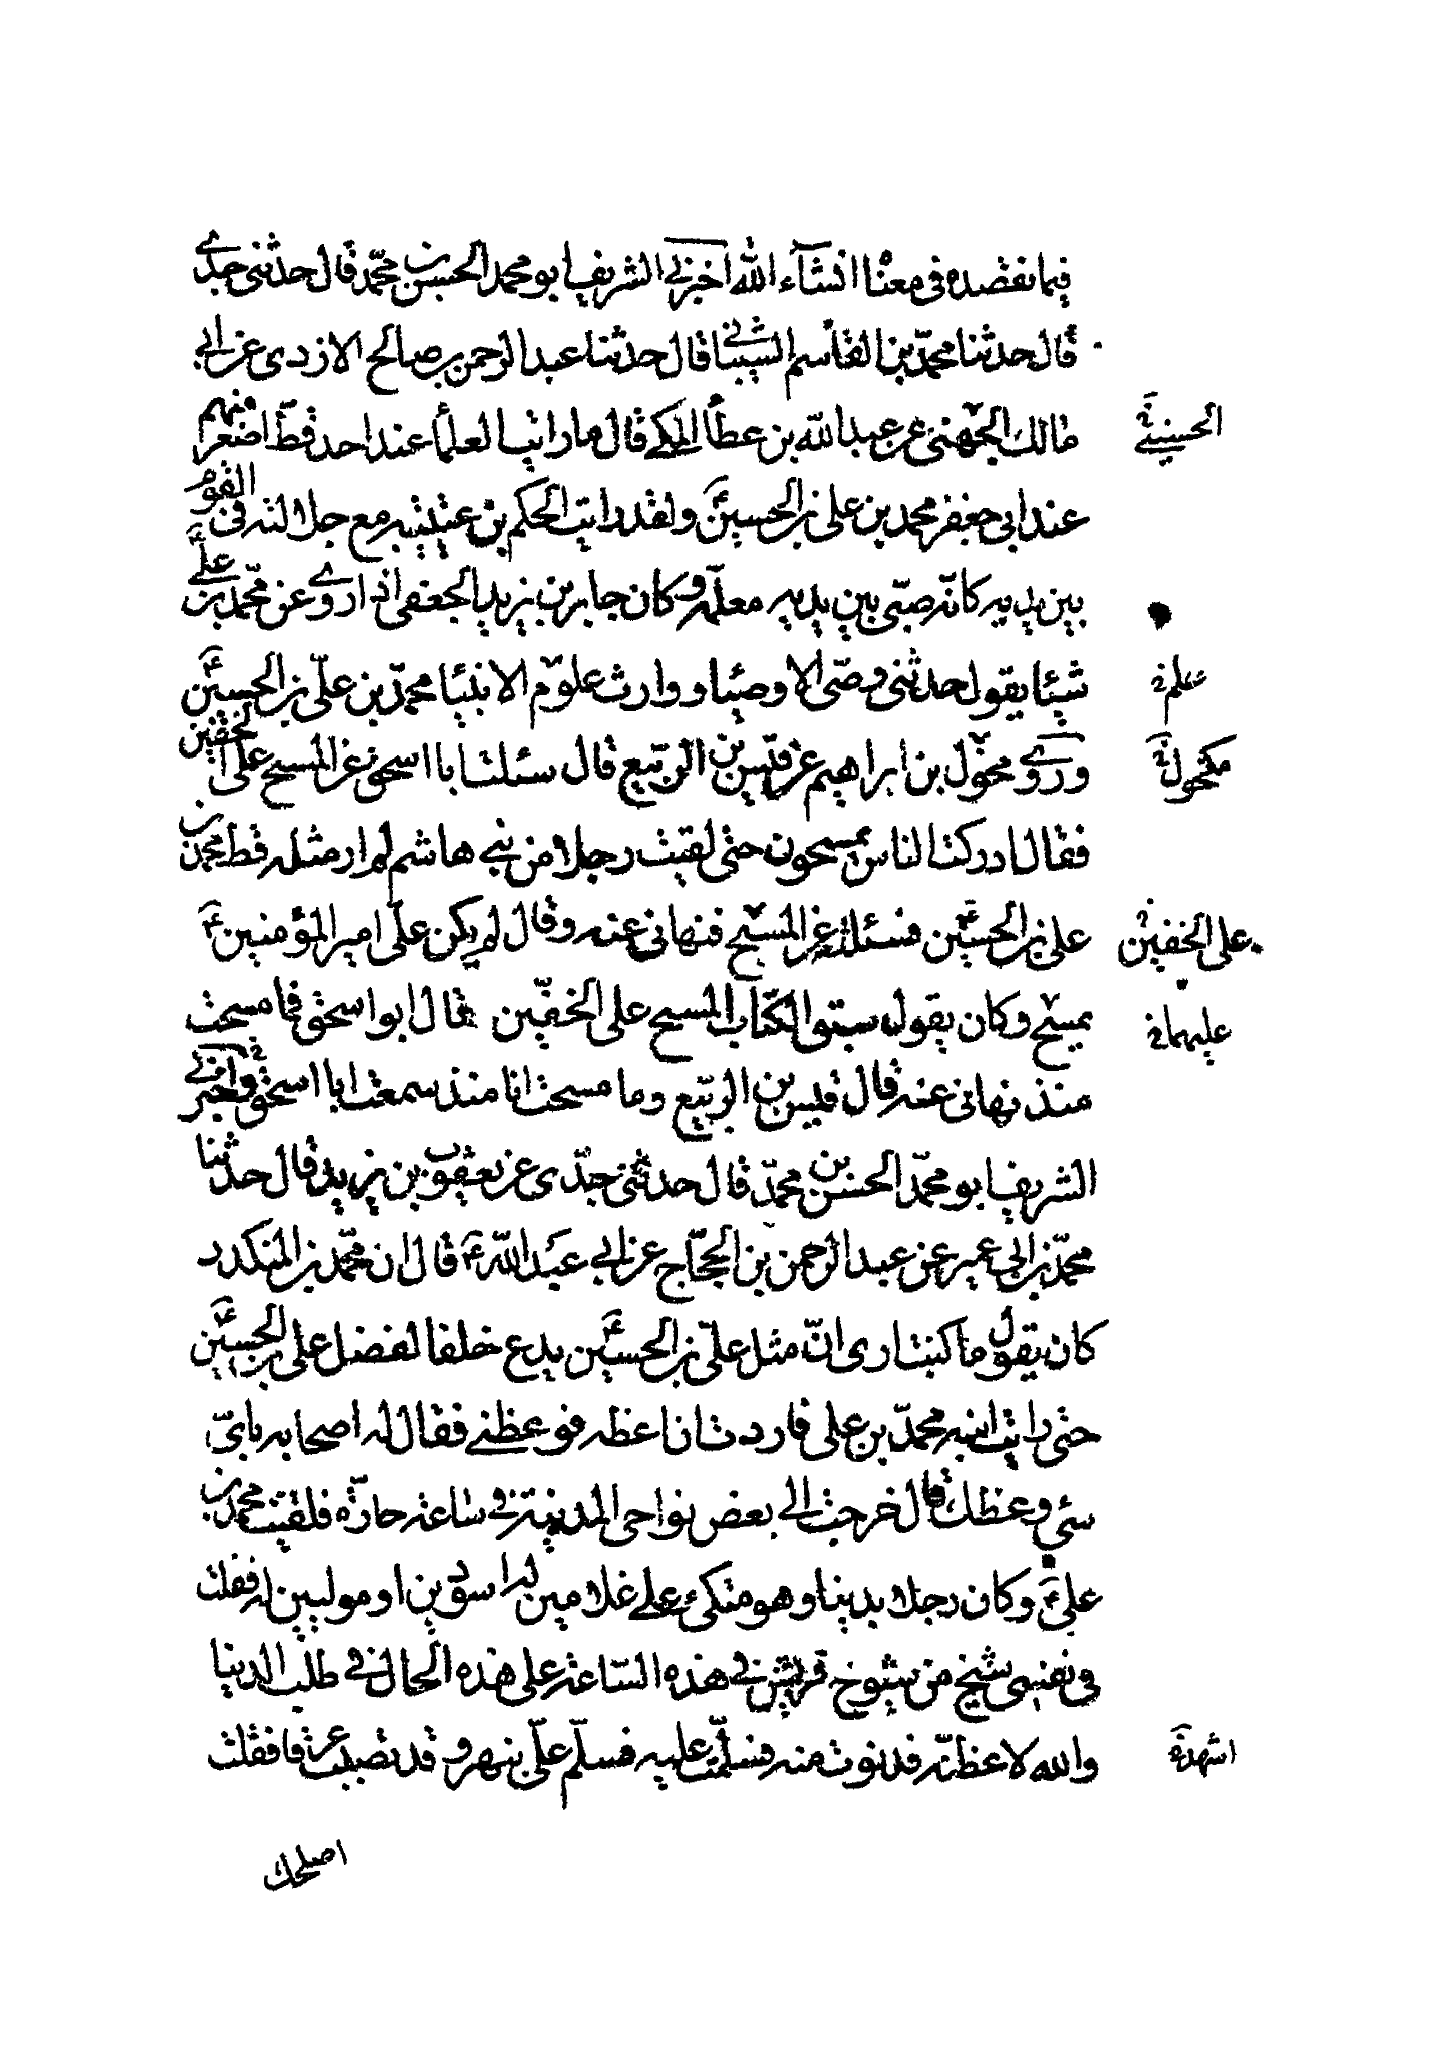 فيما نقصده فى معناه انشآء الله اخبرني الشريف ابو محمد الحسن بن محمّد قال حدثنى جدّي
قال حدثنا محمّد بن القاسم الشيباني قال حدثنا عبد الرحمن بن صالح الازدى عن ابي
مالك الجهنى عن عبد الله بن عطآ المكي قال ما رايت العلمآ عند احد قطّ اصغر منهم
عند ابى جعفر محمد بن على بن الحسين ع ولقد رايت الحكم بن عتيبه مع جلالته فى القوم
بين يديه كانّه صبّى بين يدى معلّمه وكان جابر بن يزيد الجعفى اذا روي عن محمّد بن علي
شيئا يقول حدثنى وصّى الاوصيا ووارث علوم الانبيا محمّد بن علىّ بن الحسين ع
وروي مخوّل بن ابراهيم عن قيس بن الربيع قال سئلت ابا اسحق عن المسح على الخفين
فقال ادركت الناس يمسحون حتى لقيت رجلا من بني هاشم لم ار مثله قط محمد بن
على بن الحسين ع فسئلته عن المسح فنهانى عنه وقال لم يكن علىّ امير المؤمنين ع
يمسح وكان يقول سبق الكتاب المسح على الخفّين قال ابو اسحق فما مسحت
منذ نهانى عنه قال قيس بن الربيع وما مسحت انا منذ سمعت ابا اسحق واخبرني
الشريف ابو محمّد الحسن بن محمّد قال حدثنى جدّى عن يعقوب بن يزيد قال حدثنا
محمّد بن ابي عمير عن عبد الرحمن بن الحجّاج عن ابي عبد الله ع قال ان محمّد بن المنكدر
كان يقول ما كنت ارى انّ مثل علىّ بن الحسين ع يدع خلفا لفضل على بن الحسين ع
حتى رايت ابنه محمّد بن على فاردت ان اعظه فوعظني فقال له اصحابه باىّ
شئ وعظك قال خرجت الى بعض نواحى المدينة في ساعة حارّة فلقيت محمد بن
على ع وكان رجلا بدينا وهو متكئ علي غلامين له اسودين او موليين له فقلت
فى نفسى شيخ من شيوخ قريش في هذه السّاعة على هذه الحال في طلب الدنيا
والله لاعظنّه فدنوت منه فسلّمت عليه فسلّم علىّ بنهر وقد تصبّب عرقا فقلت
اصلحك
الحسينى ع
مكحول خ
على الخفين خ
اشهدة